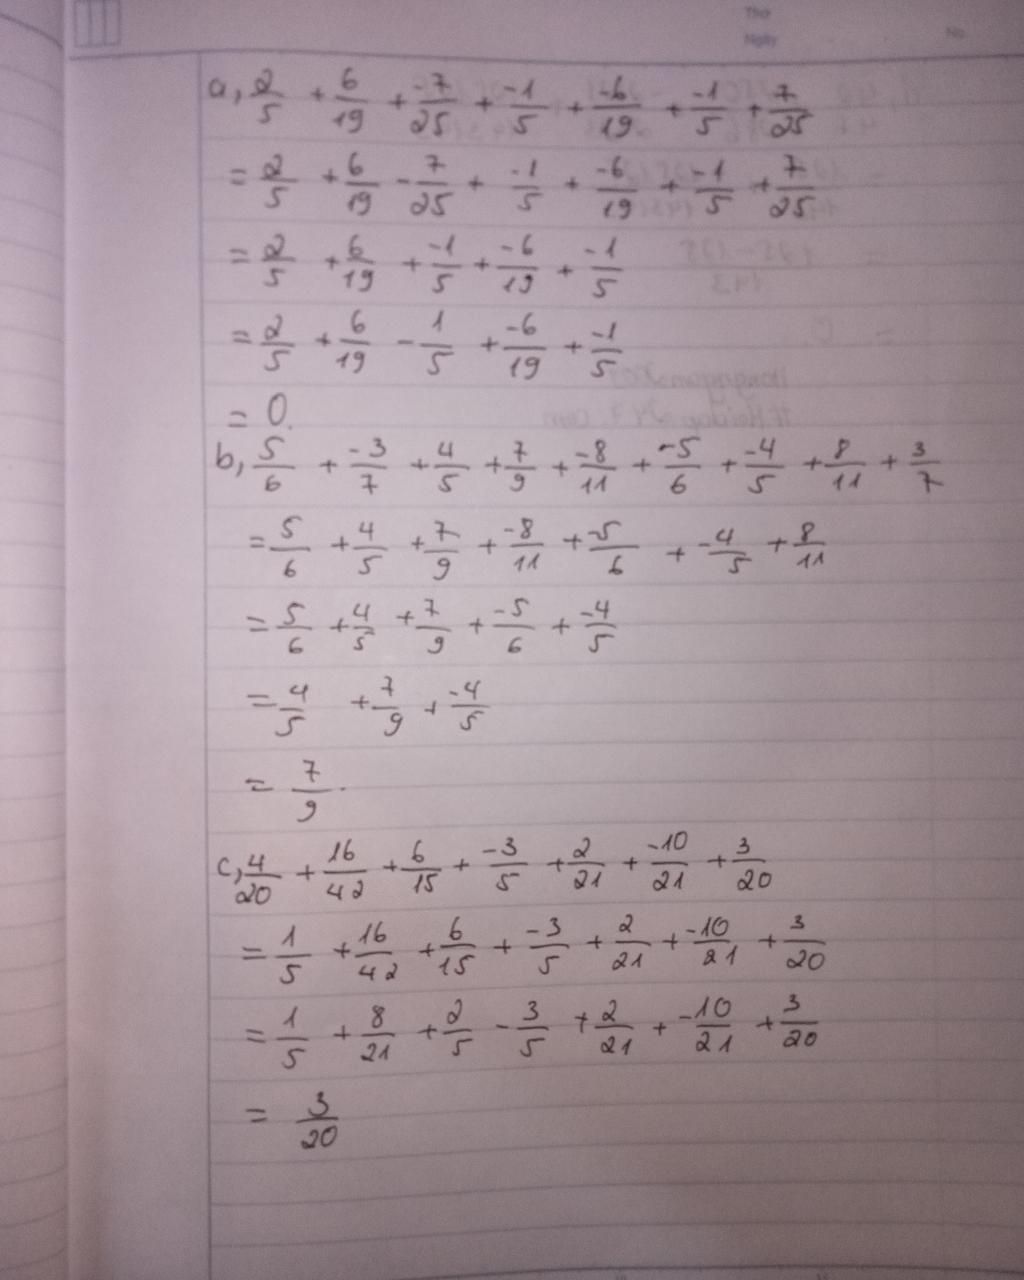 Thứ
Ngày No.
a, 2/5 + 6/19 + -7/25 + -1/5 + -6/19 + -1/5 + 7/25
= 2/5 + 6/19 - 7/25 + -1/5 + -6/19 + -1/5 + 7/25
= 2/5 + 6/19 + -1/5 + -6/19 + -1/5
= 2/5 + 6/19 - 1/5 + -6/19 + -1/5
= 0.
b, 5/6 + -3/7 + 4/5 + 7/9 + -8/11 + -5/6 + -4/5 + 8/11 + 3/7
= 5/6 + 4/5 + 7/9 + -8/11 + -5/6 + -4/5 + 8/11
= 5/6 + 4/5 + 7/9 + -5/6 + -4/5
= 4/5 + 7/9 + -4/5
= 7/9.
c, 4/20 + 16/42 + 6/15 + -3/5 + 2/21 + -10/21 + 3/20
= 1/5 + 16/42 + 6/15 + -3/5 + 2/21 + -10/21 + 3/20
= 1/5 + 8/21 + 2/5 - 3/5 + 2/21 + -10/21 + 3/20
= 3/20